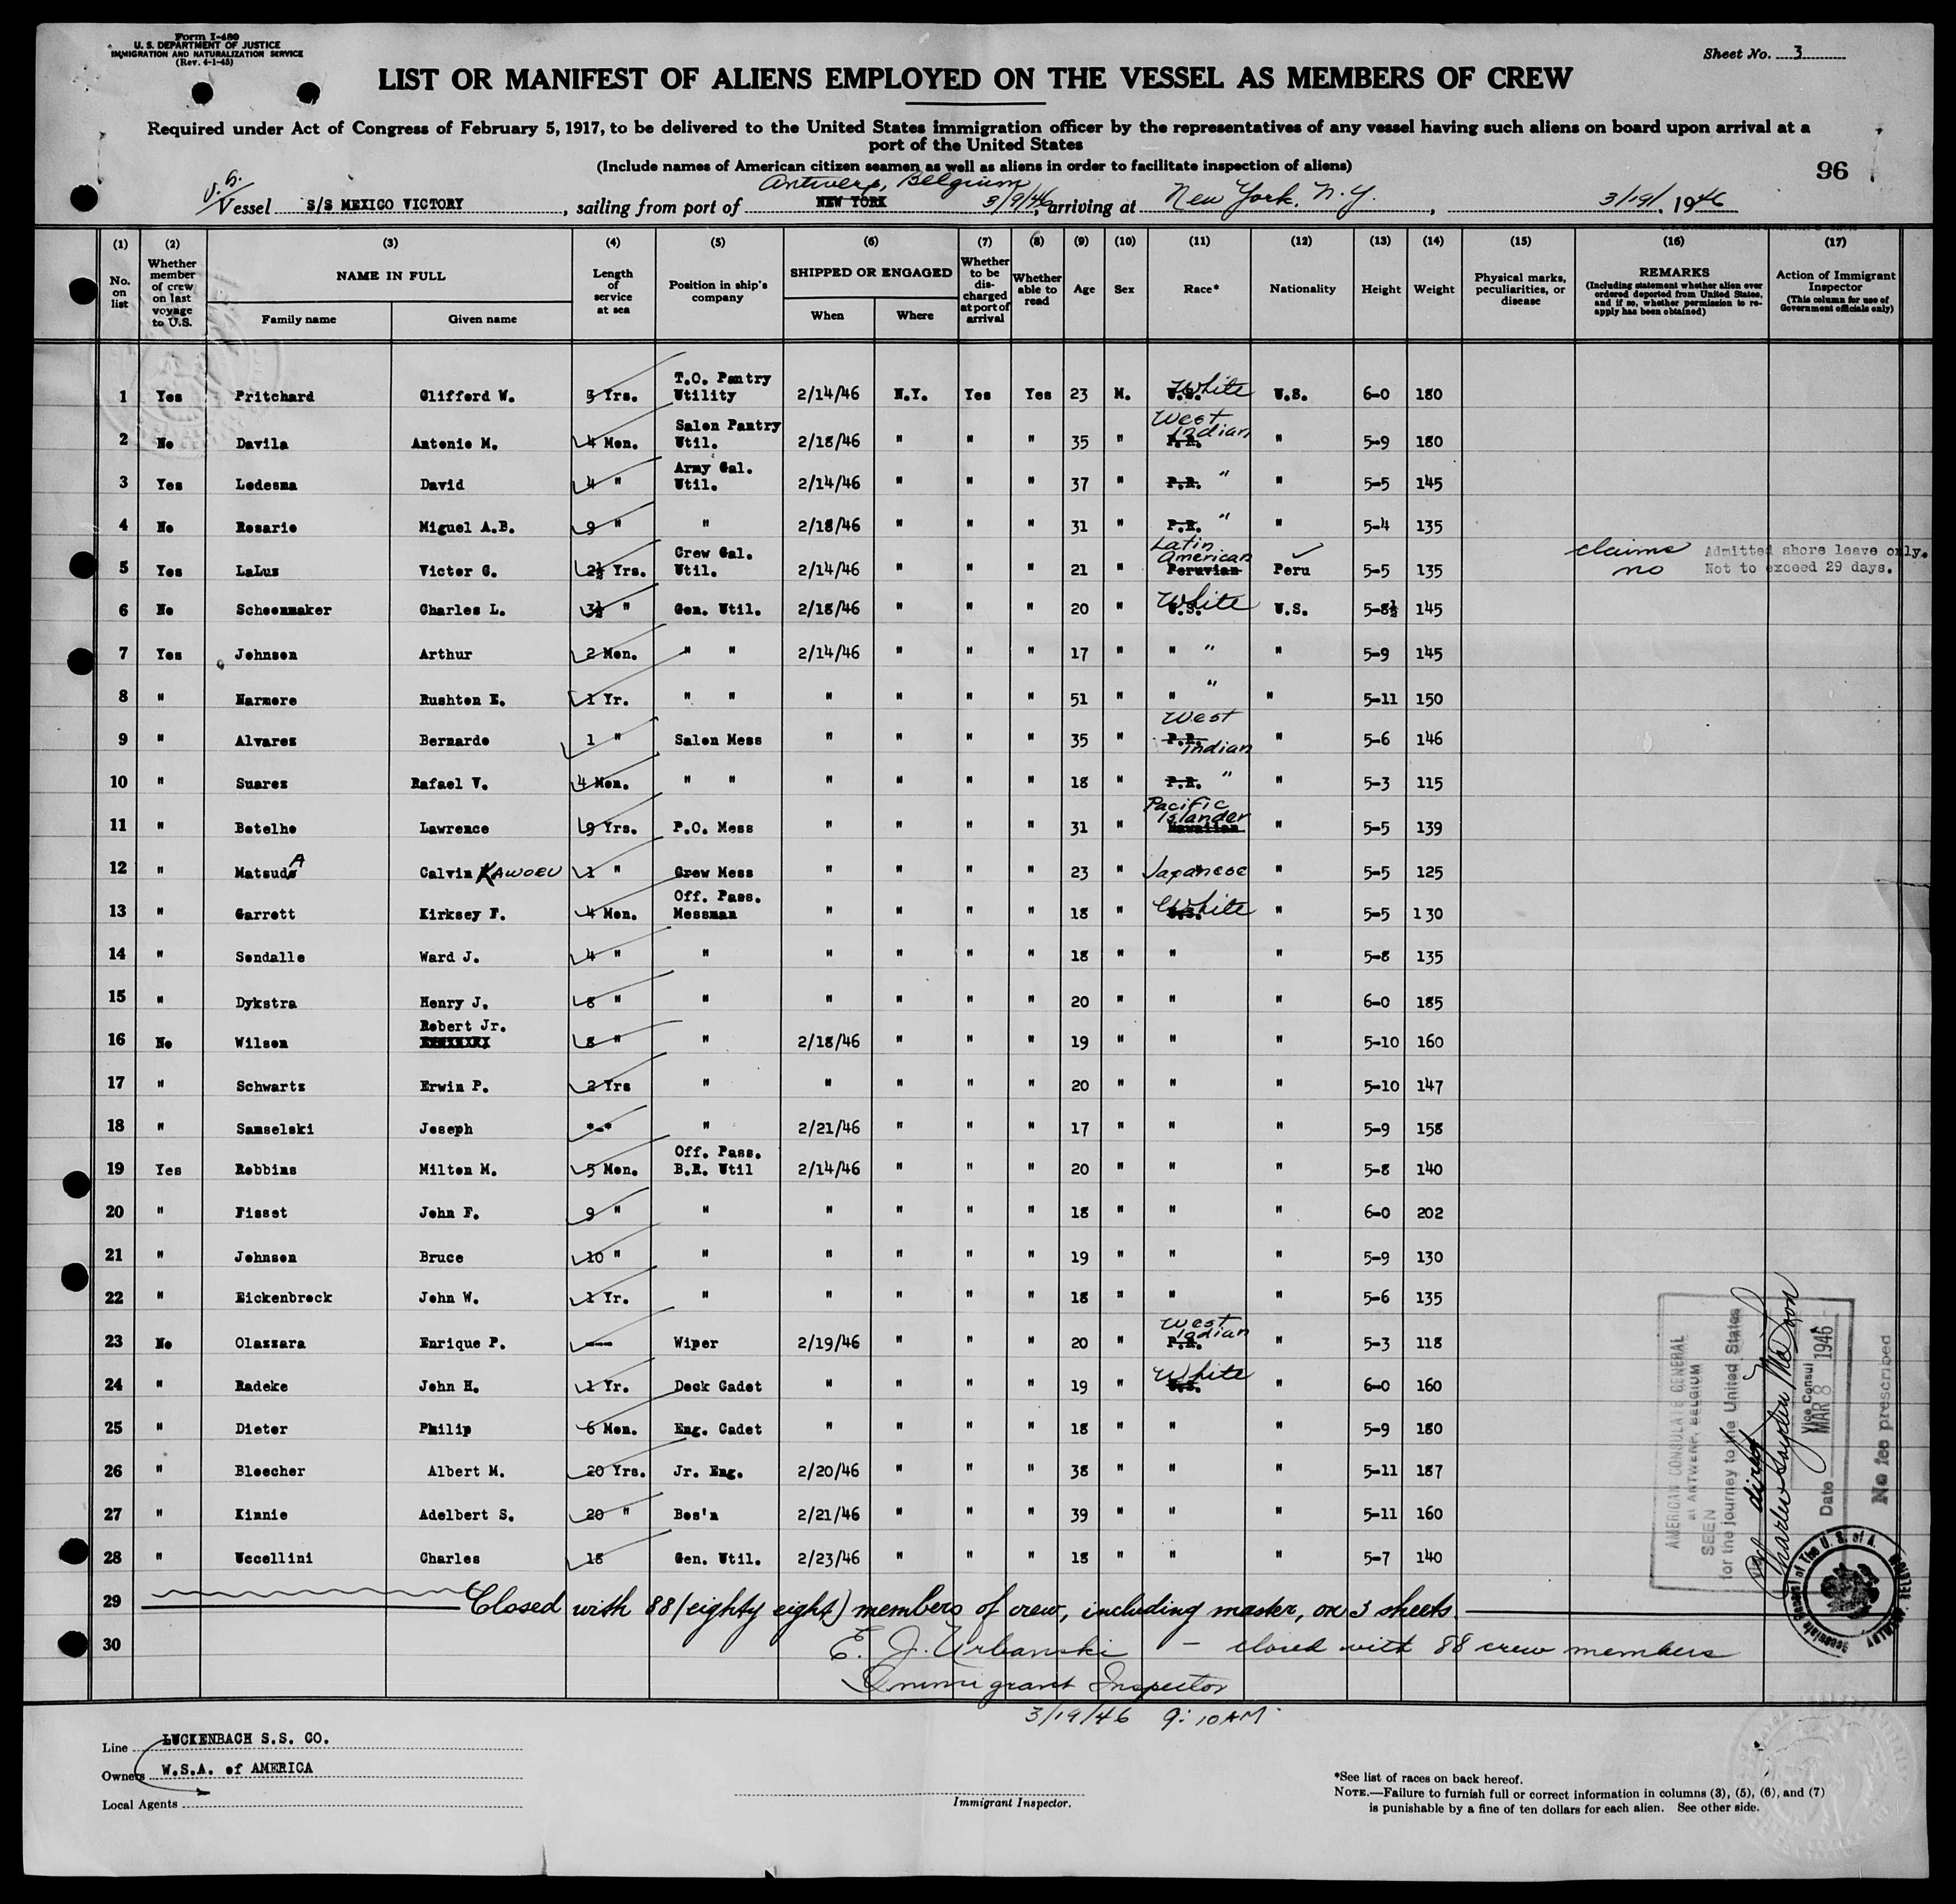 Form I-480
U. S. DEPARTMENT OF JUSTICE
IMMIGRATION AND NATURALIZATION SERVICE
(Rev. 4-1-45)
Sheet No. 3
LIST OR MANIFEST OF ALIENS EMPLOYED ON THE VESSEL AS MEMBERS OF CREW
Required under Act of Congress of February 5, 1917, to be delivered to the United States immigration officer by the representatives of any vessel having such aliens on board upon arrival at a
port of the United States
(Include names of American citizen seamen as well as aliens in order to facilitate inspection of aliens)
96
Vessel S/S MEXICO VICTORY, sailing from port of NEW YORK Antwerp, Belgium 3/9/46, arriving at New York, N.Y., 3/19/, 1946
(1) (2) (3) (4) (5) (6) (7) (8) (9) (10) (11) (12) (13) (14) (15) (16) (17)
No. on list
Whether member of crew on last voyage to U.S.
NAME IN FULL
Family name Given name
Length of service at sea
Position in ship's company
SHIPPED OR ENGAGED
When Where
Whether to be discharged at port of arrival
Whether able to read
Age Sex Race* Nationality Height Weight
Physical marks, peculiarities, or disease
REMARKS
(Including statement whether alien ever ordered deported from United States, and if so, whether permission to re-apply has been obtained)
Action of Immigrant Inspector
(This column for use of Government officials only)
1 Yes Pritchard Clifford W. 5 Yrs. T.O. Pantry Utility 2/14/46 N.Y. Yes Yes 23 M. U.S. White U.S. 6-0 180
2 No Davila Antonio M. 4 Mon. Salon Pantry Util. 2/18/46 " " " 35 " P.R. West Indian " 5-9 180
3 Yes Ledesma David 4 " Army Gal. Util. 2/14/46 " " " 37 " P.R. " " 5-5 145
4 No Rosario Miguel A.B. 9 " " 2/18/46 " " " 31 " P.R. " " 5-4 135
5 Yes LaLuz Victor G. 2½ Yrs. Crew Gal. Util. 2/14/46 " " " 21 " Peruvian Latin American Peru 5-5 135 claims no Admitted shore leave only. Not to exceed 29 days.
6 No Schoonmaker Charles L. 3½ " Gen. Util. 2/18/46 " " " 20 " U.S. White U.S. 5-8½ 145
7 Yes Johnson Arthur 2 Mon. " " 2/14/46 " " " 17 " " " " 5-9 145
8 " Narmore Rushton E. 1 Yr. " " " " " " 51 " " " " 5-11 150
9 " Alvarez Bernardo 1 " Salon Mess " " " " 35 " P.R. West Indian " 5-6 146
10 " Suarez Rafael V. 4 Mon. " " " " " " 18 " P.R. " " 5-3 115
11 " Botelho Lawrence 9 Yrs. P.O. Mess " " " " 31 " Hawaiian Pacific Islander " 5-5 139
12 " MatsudA Calvin KAWORU 1 " Crew Mess " " " " 23 " Japanese " 5-5 125
13 " Garrett Kirksey F. 4 Mon. Off. Pass. Messman " " " " 18 " U.S. White " 5-5 130
14 " Sondalle Ward J. 4 " " " " " " 18 " " " 5-8 135
15 " Dykstra Henry J. 8 " " " " " " 20 " " " 6-0 185
16 No Wilson Robert Jr. 8 " " 2/18/46 " " " 19 " " " 5-10 160
17 " Schwartz Erwin P. 2 Yrs " " " " " 20 " " " 5-10 147
18 " Samselski Joseph "-" " 2/21/46 " " " 17 " " " 5-9 158
19 Yes Robbins Milton M. 5 Mon. Off. Pass. B.R. Util 2/14/46 " " " 20 " " " 5-8 140
20 " Fisset John F. 9 " " " " " " 18 " " " 6-0 202
21 " Johnson Bruce 10 " " " " " " 19 " " " 5-9 130
22 " Eickenbrock John W. 1 Yr. " " " " " 18 " " " 5-6 135
23 No Olazzara Enrique P. --- Wiper 2/19/46 " " " 20 " P.R. West Indian " 5-3 118
24 " Radeke John H. 1 Yr. Deck Cadet " " " " 19 " U.S. White " 6-0 160
25 " Dieter Philip 6 Mon. Eng. Cadet " " " " 18 " " " 5-9 180
26 " Bloecher Albert M. 20 Yrs. Jr. Eng. 2/20/46 " " " 38 " " " 5-11 187
27 " Kinnie Adelbert S. 20 " Bos'n 2/21/46 " " " 39 " " " 5-11 160
28 " Uccellini Charles 18 Gen. Util. 2/23/46 " " " 18 " " " 5-7 140
29 Closed with 88 (eighty eight) members of crew, including master, on 3 sheets
30 E. J. Urbanski - closed with 88 crew members
Immigrant Inspector
3/19/46 9:10 AM
AMERICAN CONSULATE GENERAL
at ANTWERP, BELGIUM
SEEN
for the journey to the United States
direct
Vice Consul
Date MAR 8 1946
No fee prescribed
Line LUCKENBACH S.S. CO.
Owners W.S.A. of AMERICA
Local Agents
Immigrant Inspector.
*See list of races on back hereof.
NOTE.—Failure to furnish full or correct information in columns (3), (5), (6), and (7)
is punishable by a fine of ten dollars for each alien. See other side.